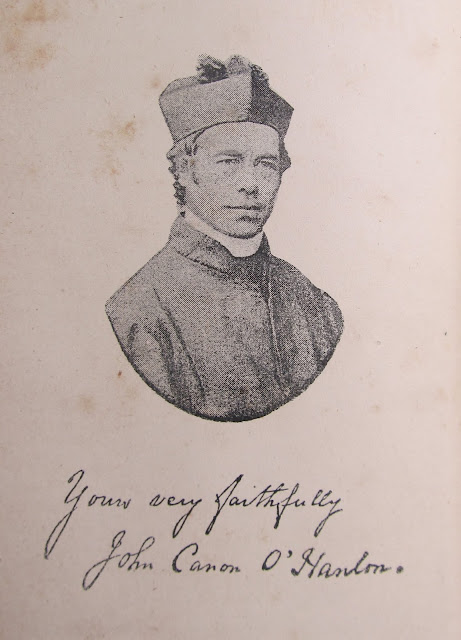 Yours very faithfully
John Canon O'Hanlon.